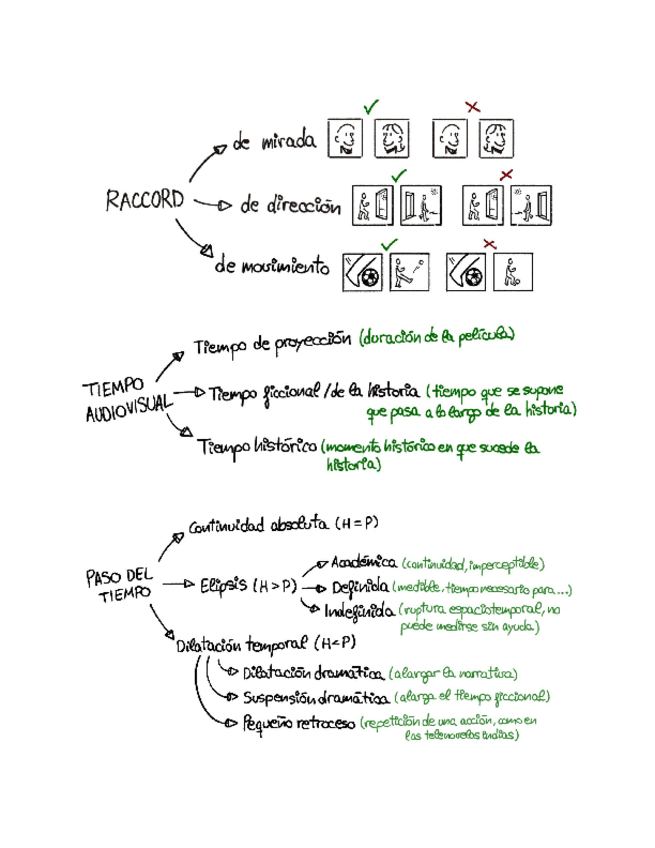 de mirada
RACCORD
de dirección
de movimiento
Tiempo de proyección (duración de la película)
TIEMPO
AUDIOVISUAL
Tiempo ficcional/de la historia (tiempo que se supone
que pasa a lo largo de la historia)
Tiempo histórico (momento histórico en que sucede la
historia)
Continuidad absoluta (H=P)
PASO DEL
TIEMPO
Elipsis (H>P)
Académica (continuidad, imperceptible)
Definida (medible, tiempo necesario para...)
Indefinida (ruptura espaciotemporal, no
puede medirse sin ayuda)
Dilatación temporal (H<P)
Dilatación dramática (alargar la narrativa)
Suspensión dramática (alarga el tiempo ficcional)
Pequeño retroceso (repetición de una acción, como en
las telenovelas indias)